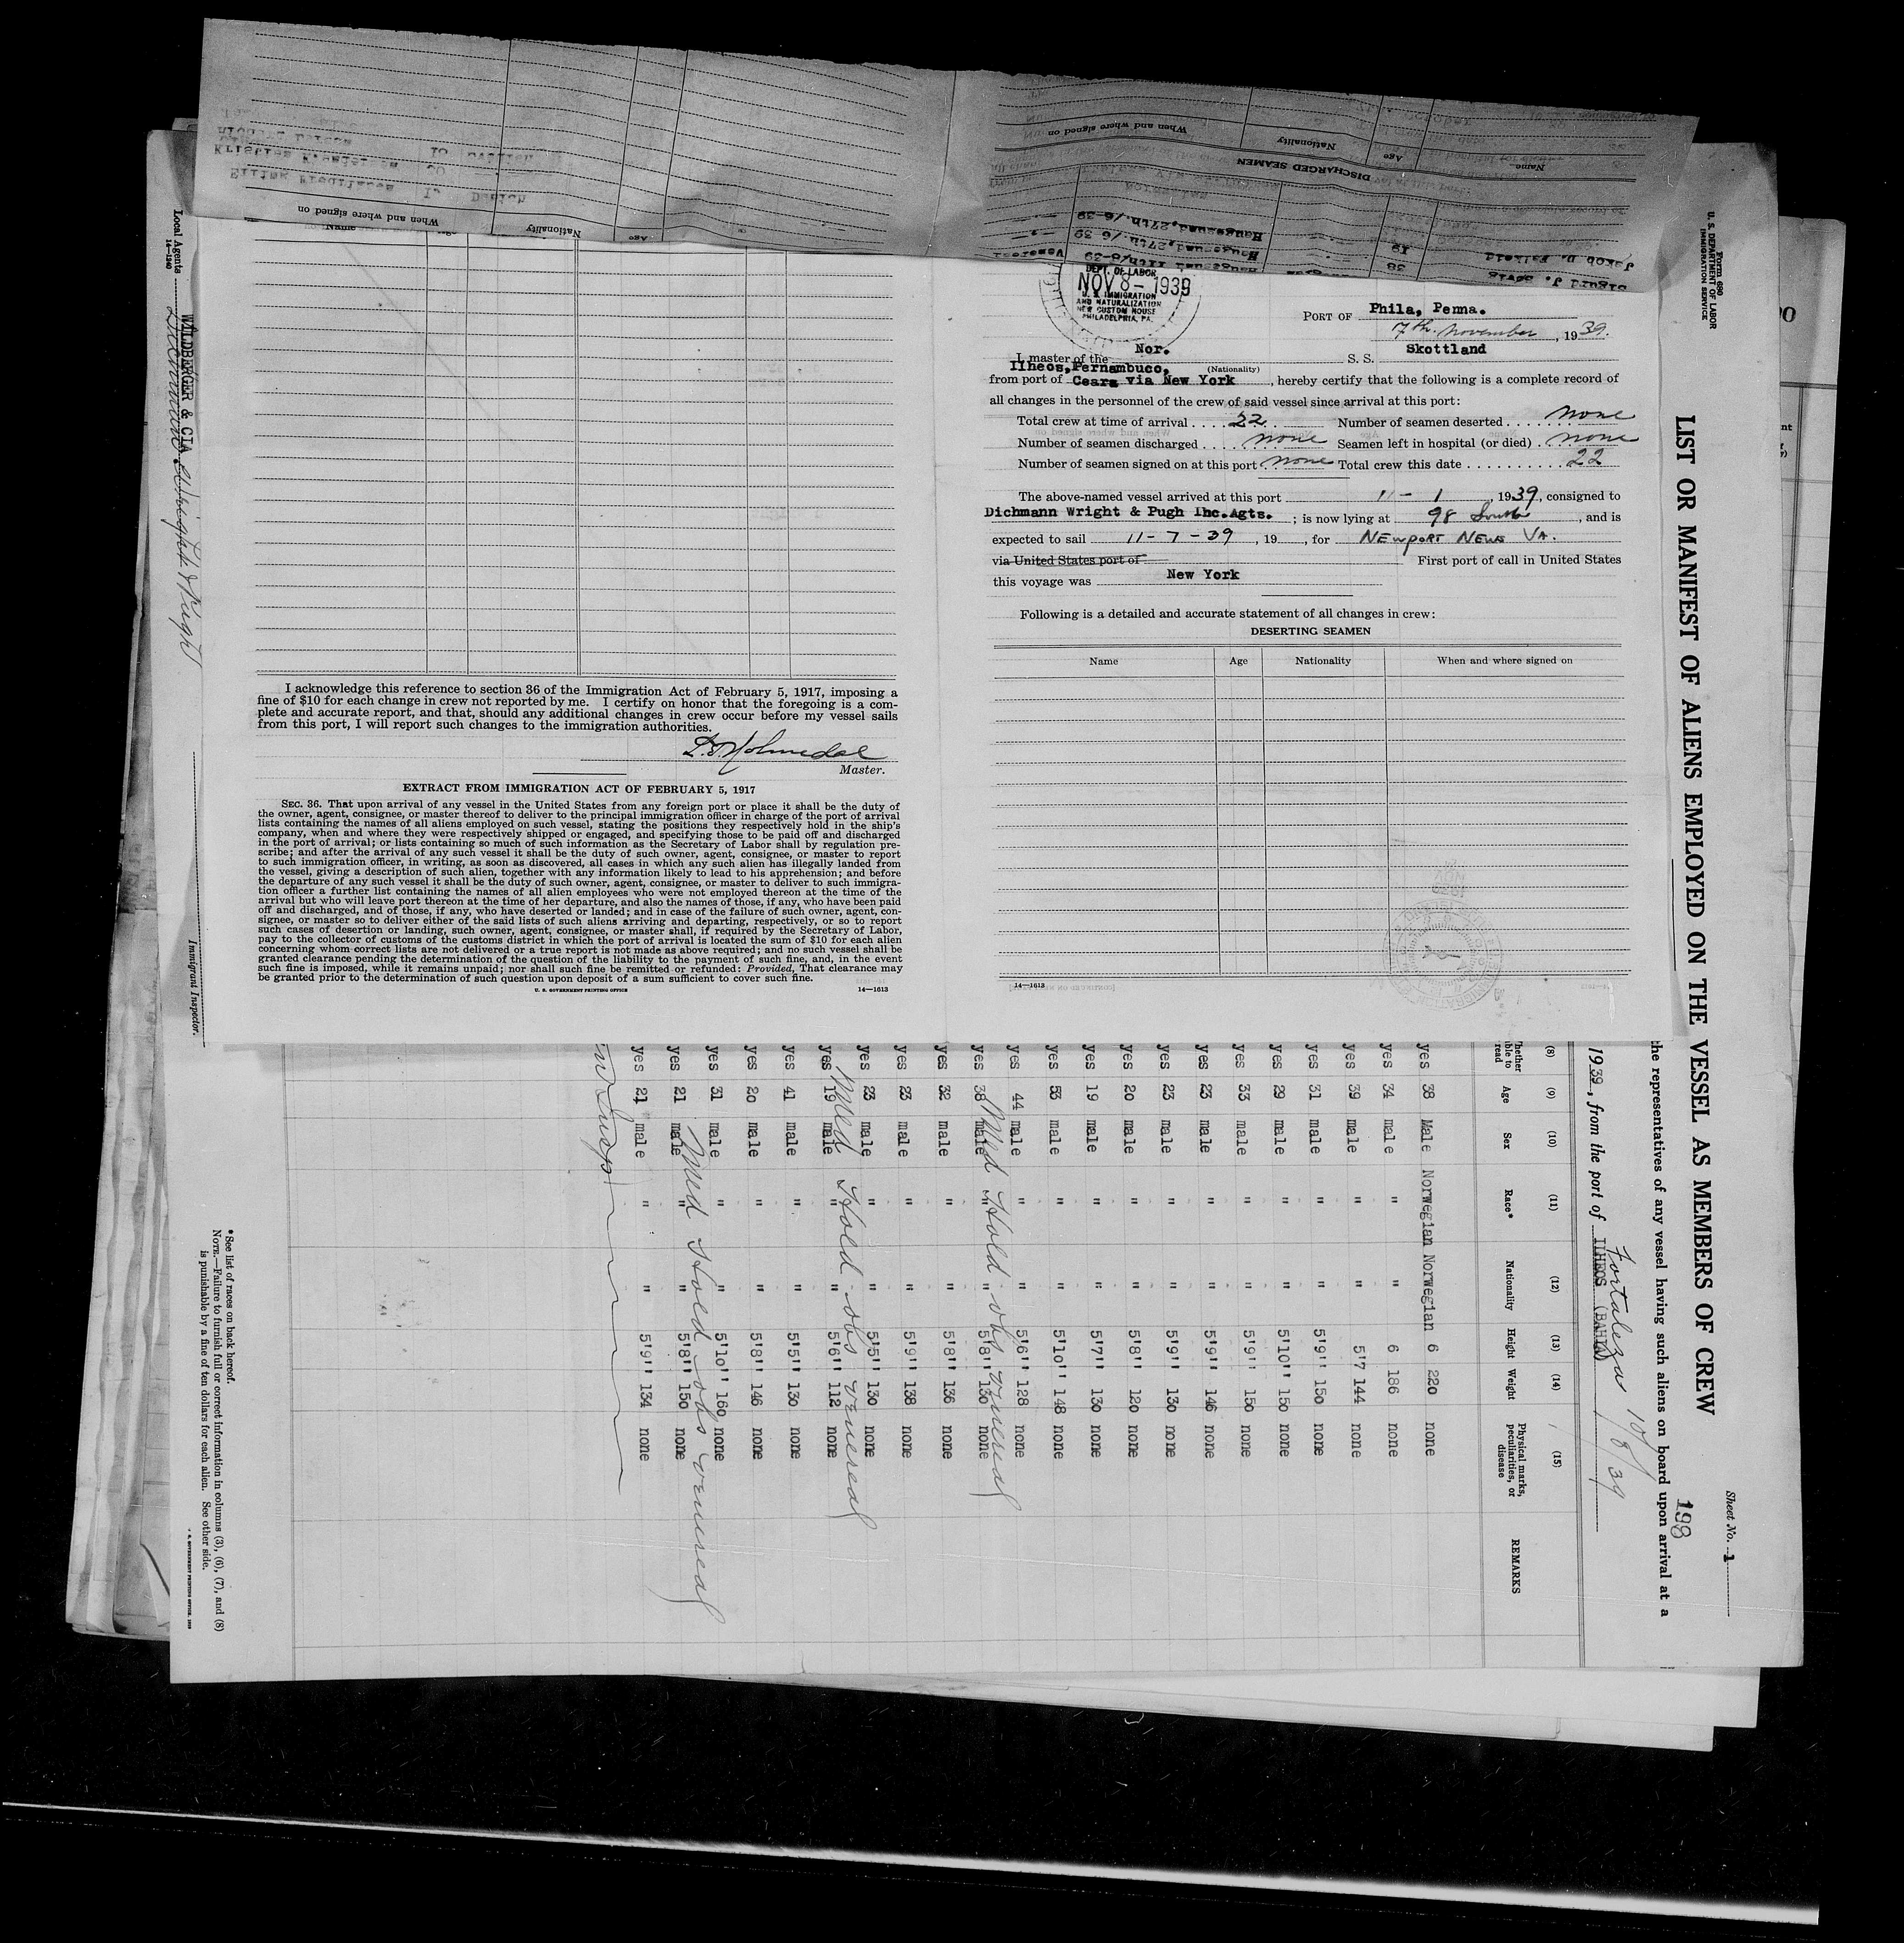 When and where signed on
Nationality
Age
Name
DISCHARGED SEAMEN
Haugesund, 27th/6-39
Haugesund, 27th/6 39
Jakob D. Falkeid
19
38
Sigurd J.
When and where signed on
Nationality
Age
Danish
DEPT. OF LABOR
NOV 8 - 1939
U. S. IMMIGRATION
AND NATURALIZATION
NEW CUSTOM HOUSE
PHILADELPHIA, PA.
PORT OF Phila, Penna.
7th. November, 1939.
I, master of the Nor. S. S. Skottland
(Nationality)
Ilheos, Pernambuco,
from port of Ceara via New York, hereby certify that the following is a complete record of
all changes in the personnel of the crew of said vessel since arrival at this port:
Total crew at time of arrival .... 22 Number of seamen deserted ........ none
Number of seamen discharged .... none Seamen left in hospital (or died) . none
Number of seamen signed on at this port none Total crew this date ........... 22
The above-named vessel arrived at this port 11 - 1, 1939, consigned to
Dichmann Wright & Pugh Inc. Agts. ; is now lying at 98 South, and is
expected to sail 11-7-39, 19 , for NEWPORT NEWS VA.
via United States port of First port of call in United States
this voyage was New York
Following is a detailed and accurate statement of all changes in crew:
DESERTING SEAMEN
Name Age Nationality When and where signed on
14—1613
I acknowledge this reference to section 36 of the Immigration Act of February 5, 1917, imposing a
fine of $10 for each change in crew not reported by me. I certify on honor that the foregoing is a com-
plete and accurate report, and that, should any additional changes in crew occur before my vessel sails
from this port, I will report such changes to the immigration authorities.
Master.
EXTRACT FROM IMMIGRATION ACT OF FEBRUARY 5, 1917
SEC. 36. That upon arrival of any vessel in the United States from any foreign port or place it shall be the duty of
the owner, agent, consignee, or master thereof to deliver to the principal immigration officer in charge of the port of arrival
lists containing the names of all aliens employed on such vessel, stating the positions they respectively hold in the ship's
company, when and where they were respectively shipped or engaged, and specifying those to be paid off and discharged
in the port of arrival; or lists containing so much of such information as the Secretary of Labor shall by regulation pre-
scribe; and after the arrival of any such vessel it shall be the duty of such owner, agent, consignee, or master to report
to such immigration officer, in writing, as soon as discovered, all cases in which any such alien has illegally landed from
the vessel, giving a description of such alien, together with any information likely to lead to his apprehension; and before
the departure of any such vessel it shall be the duty of such owner, agent, consignee, or master to deliver to such immigra-
tion officer a further list containing the names of all alien employees who were not employed thereon at the time of the
arrival but who will leave port thereon at the time of her departure, and also the names of those, if any, who have been paid
off and discharged, and of those, if any, who have deserted or landed; and in case of the failure of such owner, agent, con-
signee, or master so to deliver either of the said lists of such aliens arriving and departing, respectively, or so to report
such cases of desertion or landing, such owner, agent, consignee, or master shall, if required by the Secretary of Labor,
pay to the collector of customs of the customs district in which the port of arrival is located the sum of $10 for each alien
concerning whom correct lists are not delivered or a true report is not made as above required; and no such vessel shall be
granted clearance pending the determination of the question of the liability to the payment of such fine, and, in the event
such fine is imposed, while it remains unpaid; nor shall such fine be remitted or refunded: Provided, That clearance may
be granted prior to the determination of such question upon deposit of a sum sufficient to cover such fine.
U. S. GOVERNMENT PRINTING OFFICE 14—1613
Form 680
U. S. DEPARTMENT OF LABOR
IMMIGRATION SERVICE
Sheet No. 1
LIST OR MANIFEST OF ALIENS EMPLOYED ON THE VESSEL AS MEMBERS OF CREW
198
the representatives of any vessel having such aliens on board upon arrival at a
Fortaleza 10/8/39
1939, from the port of ILHEOS (BAHIA)
(8) (9) (10) (11) (12) (13) (14) (15)
Whether able to read Age Sex Race* Nationality Height Weight Physical marks, peculiarities, or disease REMARKS
yes 38 Male Norwegian Norwegian 6 220 none
yes 34 male " " 6 186 none
yes 39 male " " 5'7 144 none
yes 31 male " " 5'9'' 150 none
yes 29 male " " 5'10'' 150 none
yes 33 male " " 5'9'' 150 none
yes 23 male " " 5'9'' 146 none
yes 23 male " " 5'9'' 130 none
yes 20 male " " 5'8'' 120 none
yes 19 male " " 5'7'' 130 none
yes 53 male " " 5'10'' 148 none
yes 44 male " " 5'6'' 128 none
Med Hold obs venereal
yes 38 male " " 5'8'' 130 none
yes 32 male " " 5'8'' 136 none
yes 23 male " " 5'9'' 138 none
yes 23 male " " 5'5'' 130 none
Med Hold obs venereal
yes 19 male " " 5'6'' 112 none
yes 41 male " " 5'5'' 130 none
yes 20 male " " 5'8'' 146 none
yes 31 male " " 5'10'' 160 none
Med Hold obs venereal
yes 21 male " " 5'8'' 150 none
yes 21 male " " 5'9'' 134 none
*See list of races on back hereof.
NOTE.—Failure to furnish full or correct information in columns (3), (6), (7), and (8)
is punishable by a fine of ten dollars for each alien. See other side.
WILDBERGER & CIA.
Local Agents Dichmann Wright & Pugh
14—1240
Immigrant Inspector.